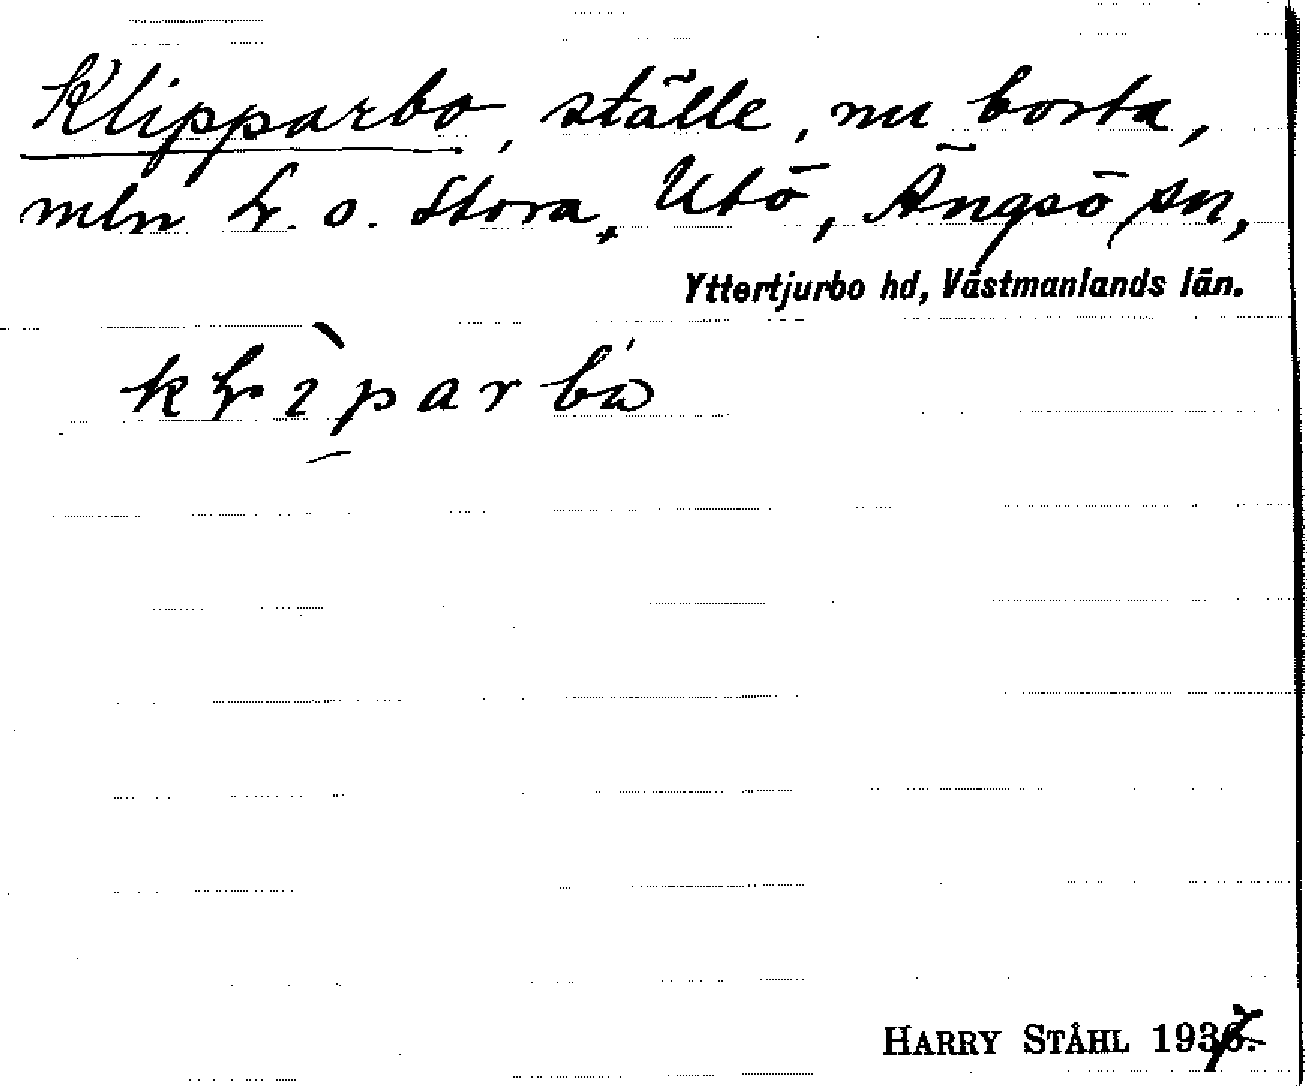 Klipparbo, ställe, nu borta,
mln L. o. Stora Utö, Ängsö sn,
Yttertjurbo hd, Västmanlands län.
HARRY STÅHL 1937